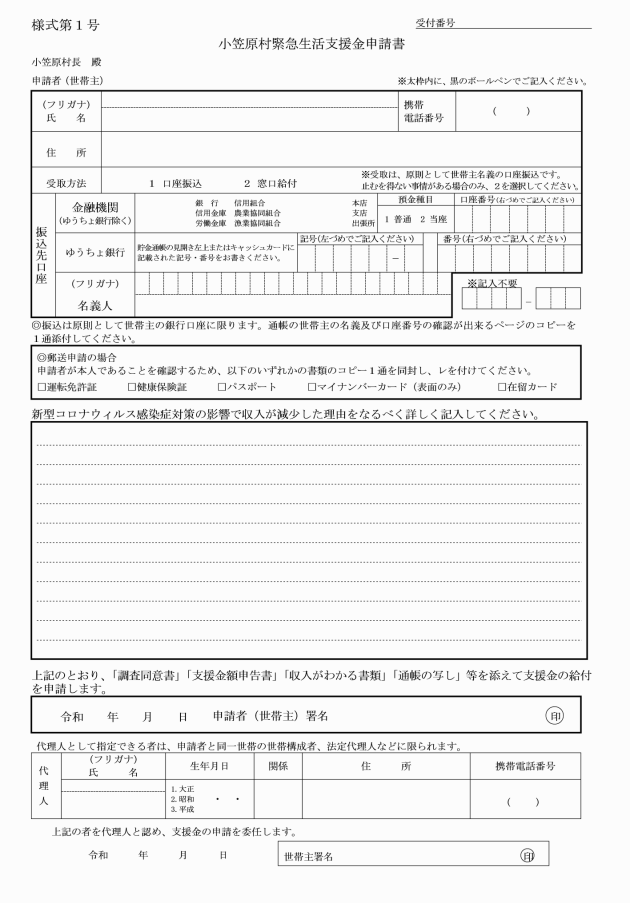 様式第１号
受付番号
小笠原村緊急生活支援金申請書
小笠原村長　殿
申請者（世帯主）
※太枠内に、黒のボールペンでご記入ください。
（フリガナ）
氏　名
携帯
電話番号
（　　　）
住　所
受取方法
１　口座振込　　　２　窓口給付
※受取は、原則として世帯主名義の口座振込です。
止むを得ない事情がある場合のみ、２を選択してください。
振込先口座
金融機関
（ゆうちょ銀行除く）
銀　行　信用組合
信用金庫　農業協同組合
労働金庫　漁業協同組合
本店
支店
出張所
預金種目
１ 普通　２ 当座
口座番号（右づめでご記入ください）
ゆうちょ銀行
貯金通帳の見開き左上またはキャッシュカードに
記載された記号・番号をお書きください。
記号（左づめでご記入ください）
－
番号（右づめでご記入ください）
（フリガナ）
名義人
※記入不要
－
◎振込は原則として世帯主の銀行口座に限ります。通帳の世帯主の名義及び口座番号の確認が出来るページのコピーを
１通添付してください。
◎郵送申請の場合
申請者が本人であることを確認するため、以下のいずれかの書類のコピー１通を同封し、レを付けてください。
□運転免許証　□健康保険証　□パスポート　□マイナンバーカード（表面のみ）　□在留カード
新型コロナウィルス感染症対策の影響で収入が減少した理由をなるべく詳しく記入してください。
上記のとおり、「調査同意書」「支援金額申告書」「収入がわかる書類」「通帳の写し」等を添えて支援金の給付
を申請します。
令和　　年　　月　　日　　申請者（世帯主）署名　　㊞
代理人として指定できる者は、申請者と同一世帯の世帯構成者、法定代理人などに限られます。
代理人
（フリガナ）
氏　　名
生年月日
関係
住　　所
携帯電話番号
1. 大正
2. 昭和　・　・
3. 平成
（　　　）
上記の者を代理人と認め、支援金の申請を委任します。
令和　　年　　月　　日
世帯主署名　　㊞